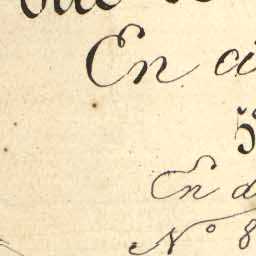 En ci
5
En d
Nº 8